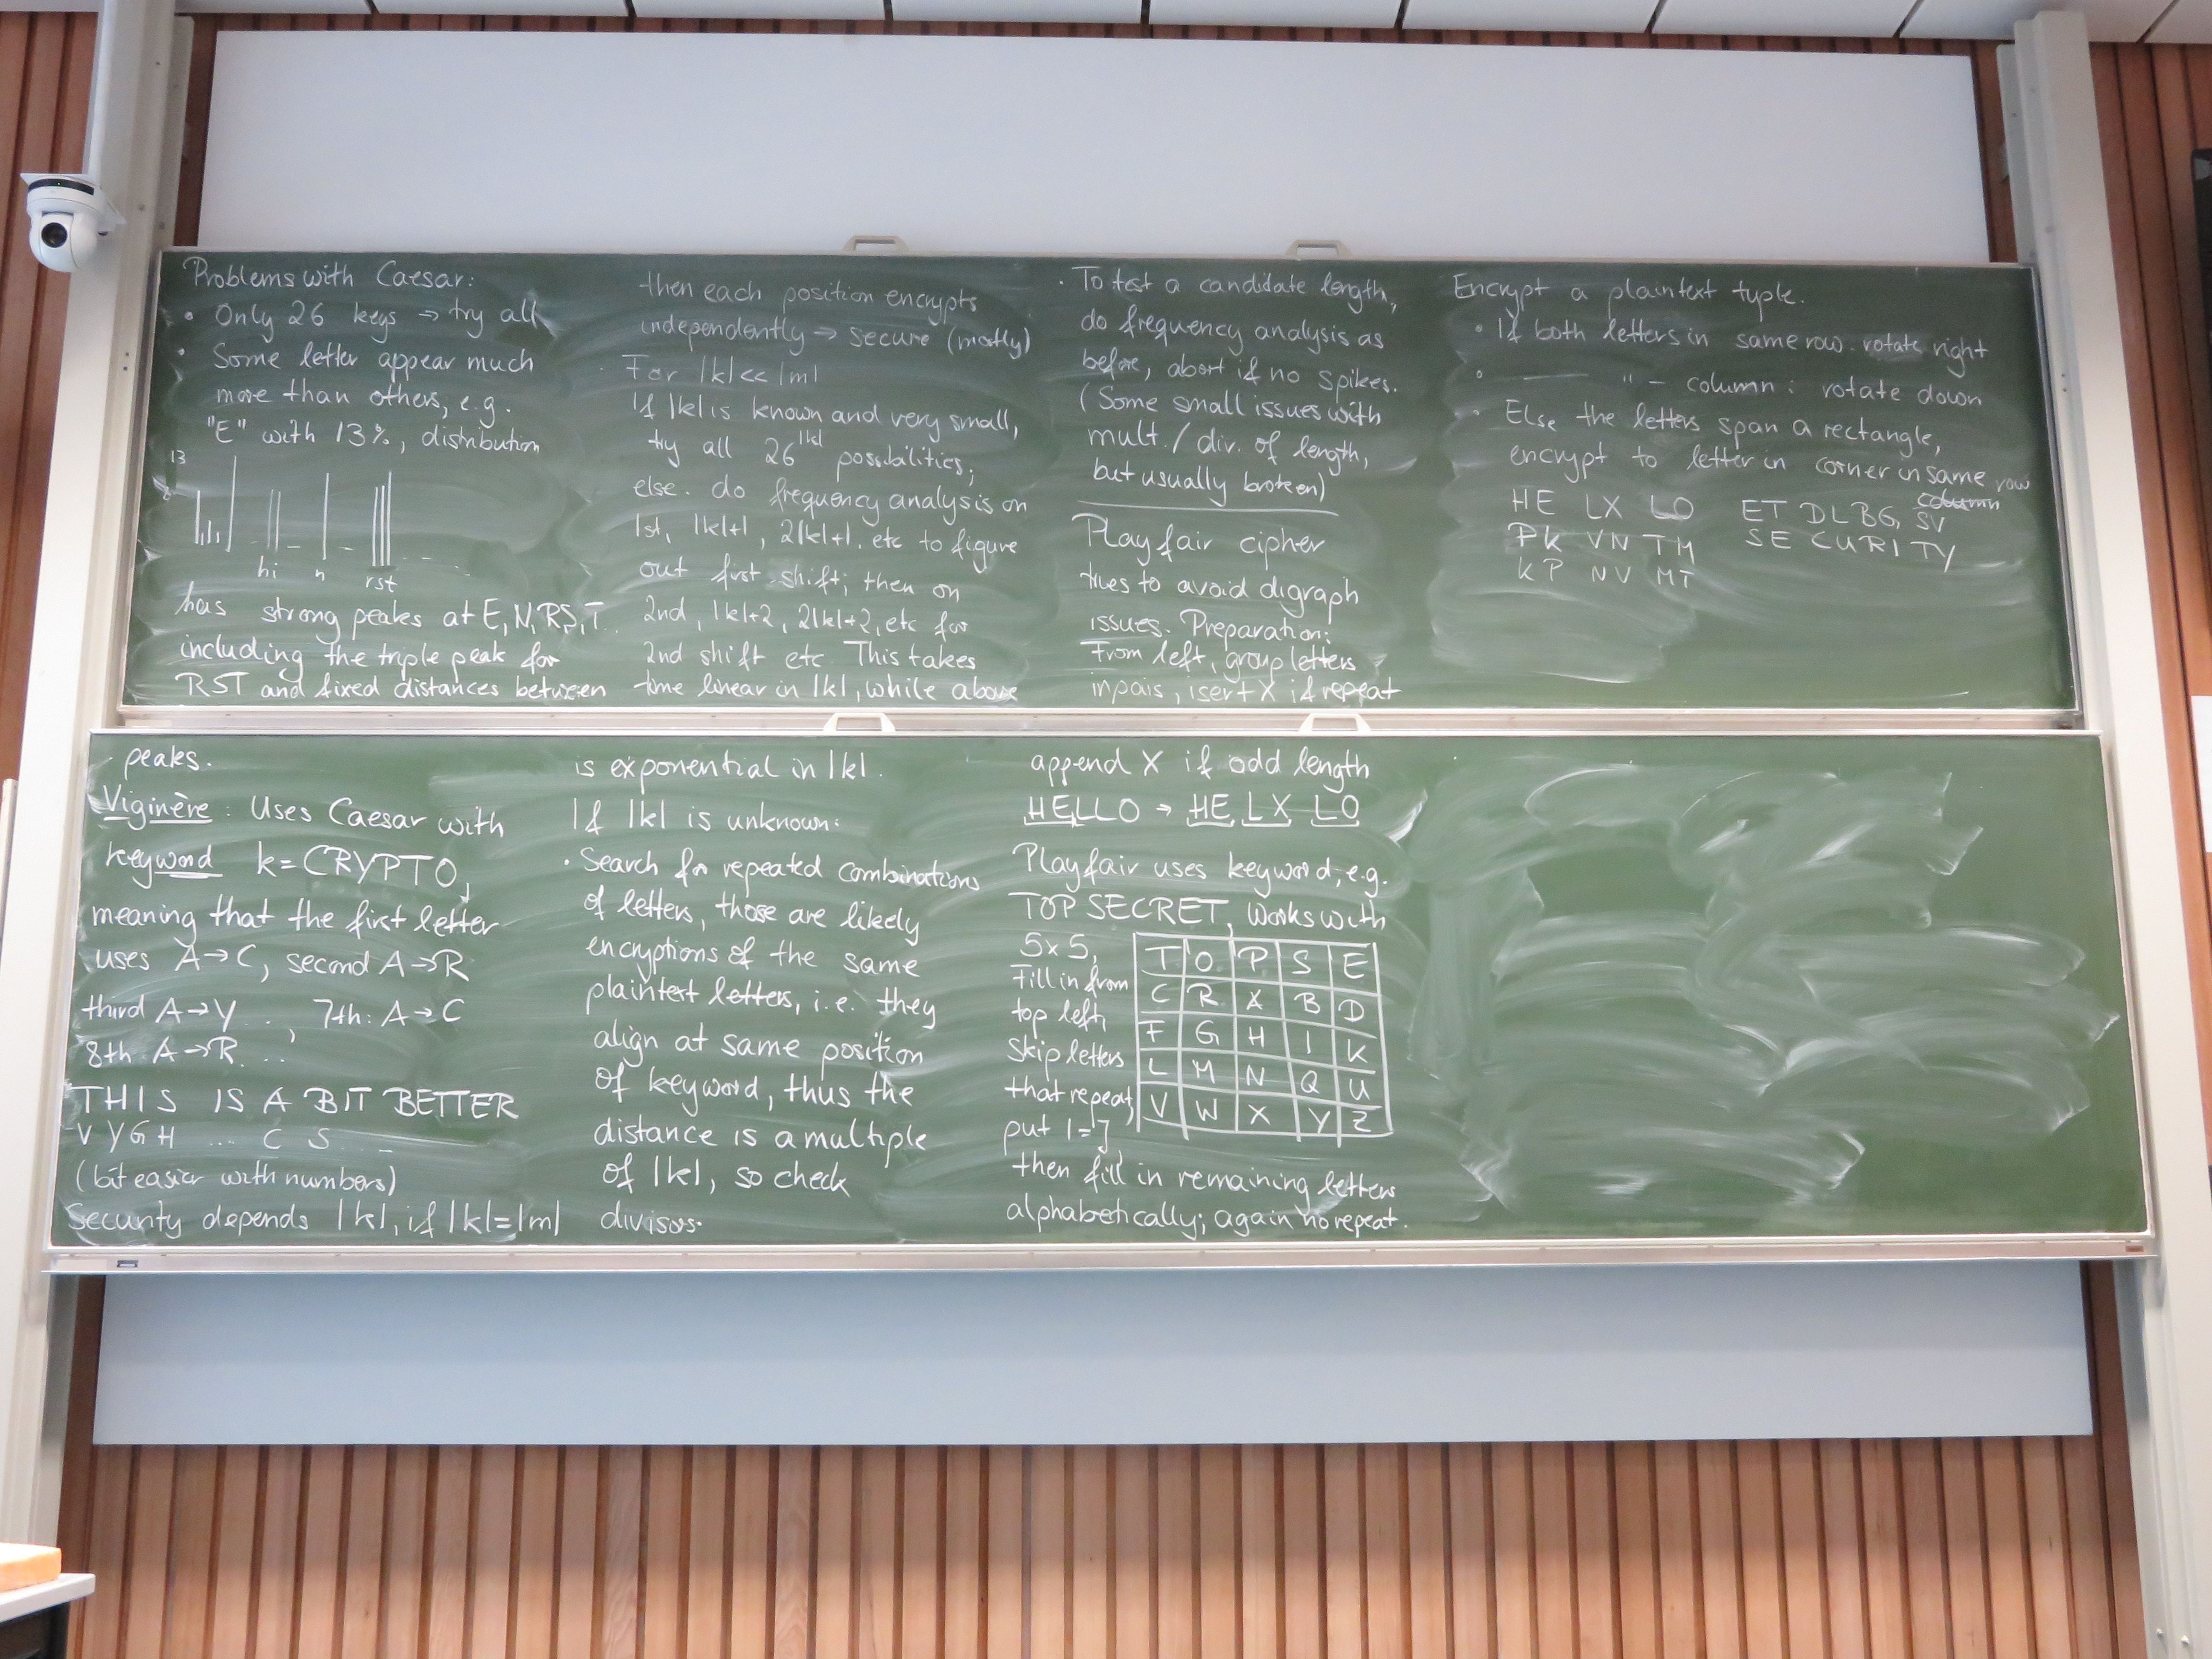 Problems with Caesar:
• Only 26 keys → try all
• Some letter appear much
more than others, e.g.
"E" with 13%, distribution
13
hi n rst
has strong peaks at E, N, RS, T
including the triple peak for
RST and fixed distances between
peaks.
Viginère: Uses Caesar with
keyword k=CRYPTO,
meaning that the first letter
uses A→C, second A→R
third A→Y ..., 7th: A→C
8th A→R...
THIS IS A BIT BETTER
VYGH .... C S ....
(bit easier with numbers)
Security depends |k|, if |k|=|m|
then each position encrypts
independently → secure (mostly)
· For |k|<<|m|
If |k| is known and very small,
try all 26^|k| possibilities;
else. do frequency analysis on
1st, |k|+1, 2|k|+1, etc to figure
out first shift; then on
2nd, |k|+2, 2|k|+2, etc for
2nd shift etc. This takes
time linear in |k|, while above
is exponential in |k|.
If |k| is unknown:
• Search for repeated combinations
of letters, those are likely
encryptions of the same
plaintext letters, i.e. they
align at same position
of keyword, thus the
distance is a multiple
of |k|, so check
divisors.
· To test a candidate length,
do frequency analysis as
before, abort if no spikes.
(Some small issues with
mult. / div. of length,
but usually broken)
Playfair cipher
tries to avoid digraph
issues. Preparation:
From left, group letters
in pais, isert X if repeat
append X if odd length
HELLO → HE LX LO
Playfair uses keyword, e.g.
TOP SECRET, Works with
5x5,
Fill in from
top left,
skip letters
that repeat,
put I=J,
T O P S E
C R A B D
F G H I K
L M N Q U
V W X Y Z
then fill in remaining letters
alphabetically; again no repeat.
Encrypt a plaintext tuple.
• If both letters in same row: rotate right
• —— " — column: rotate down
• Else the letters span a rectangle,
encrypt to letter in corner in same row
column
HE LX LO ET DL BG SV
PK VN TM SE CU RI TY
KP NV MT